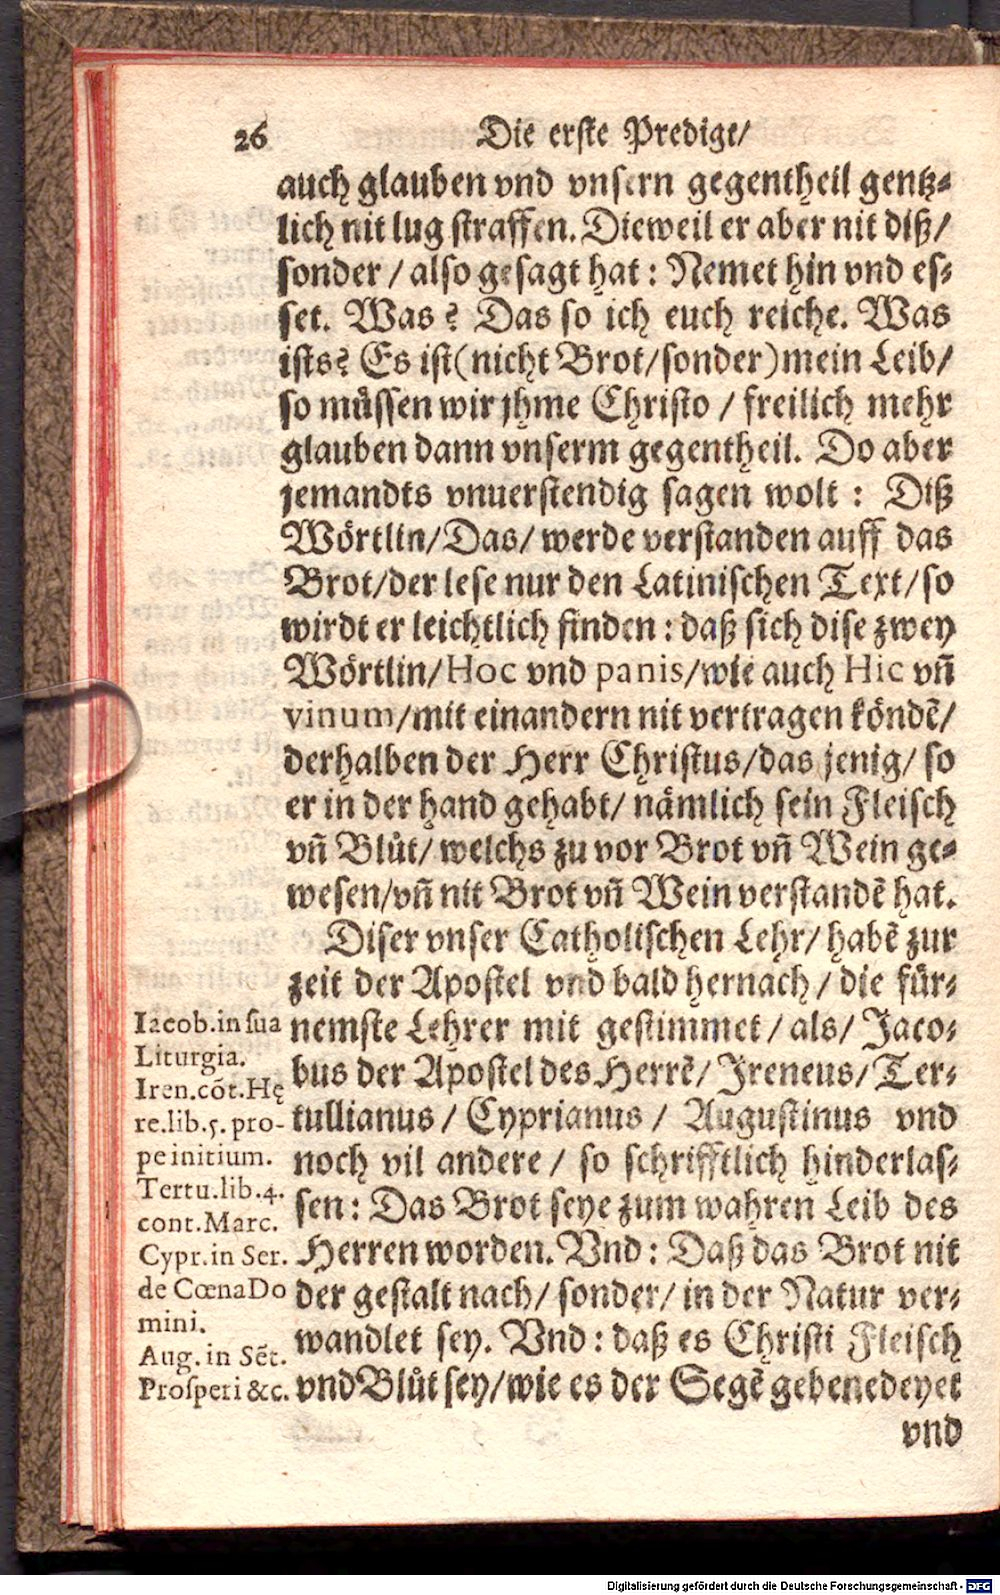 26 Die erste Predigt/
auch glauben vnd vnsern gegentheil gentz-
lich nit lug straffen. Dieweil er aber nit diß/
sonder / also gesagt hat : Nemet hin vnd es-
set. Was ? Das so ich euch reiche. Was
ists? Es ist (nicht Brot/sonder) mein Leib/
so müssen wir jhme Christo / freilich mehr
glauben dann vnserm gegentheil. Do aber
jemandts vnuerstendig sagen wolt : Diß
Wörtlin/Das/ werde verstanden auff das
Brot/der lese nur den Latinischen Text/so
wirdt er leichtlich finden : daß sich dise zwey
Wörtlin/Hoc vnd panis/wie auch Hic vñ
vinum/mit einandern nit vertragen köndẽ/
derhalben der Herr Christus/das jenig/ so
er in der hand gehabt/ nämlich sein Fleisch
vñ Blůt/ welchs zu vor Brot vñ Wein ge-
wesen/vñ nit Brot vñ Wein verstandẽ hat.
Diser vnser Catholischen Lehr/ habẽ zur
zeit der Apostel vnd bald hernach / die für-
nemste Lehrer mit gestimmet / als/ Jaco-
bus der Apostel des Herrẽ/ Jreneus/ Ter-
tullianus / Cyprianus / Augustinus vnd
noch vil andere / so schrifftlich hinderlas-
sen : Das Brot seye zum wahren Leib des
Herren worden. Vnd : Daß das Brot nit
der gestalt nach/ sonder/ in der Natur ver-
wandlet sey. Vnd : daß es Christi Fleisch
vnd Blůt sey/wie es der Segẽ gebenedeyet
vnd
Iacob. in sua
Liturgia.
Iren. cõt. Hę
re. lib. 5. pro-
pe initium.
Tertu. lib. 4.
cont. Marc.
Cypr. in Ser.
de Cœna Do
mini.
Aug. in Sẽt.
Prosperi &c.
Digitalisierung gefördert durch die Deutsche Forschungsgemeinschaft - DFG